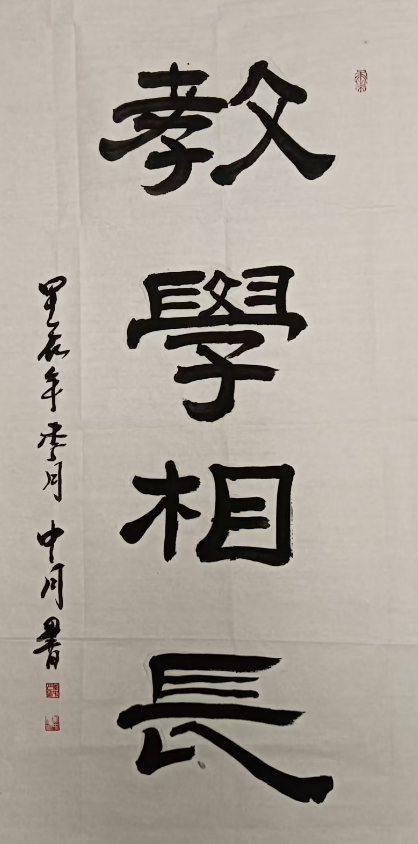 教學相長
甲辰年季月中月書